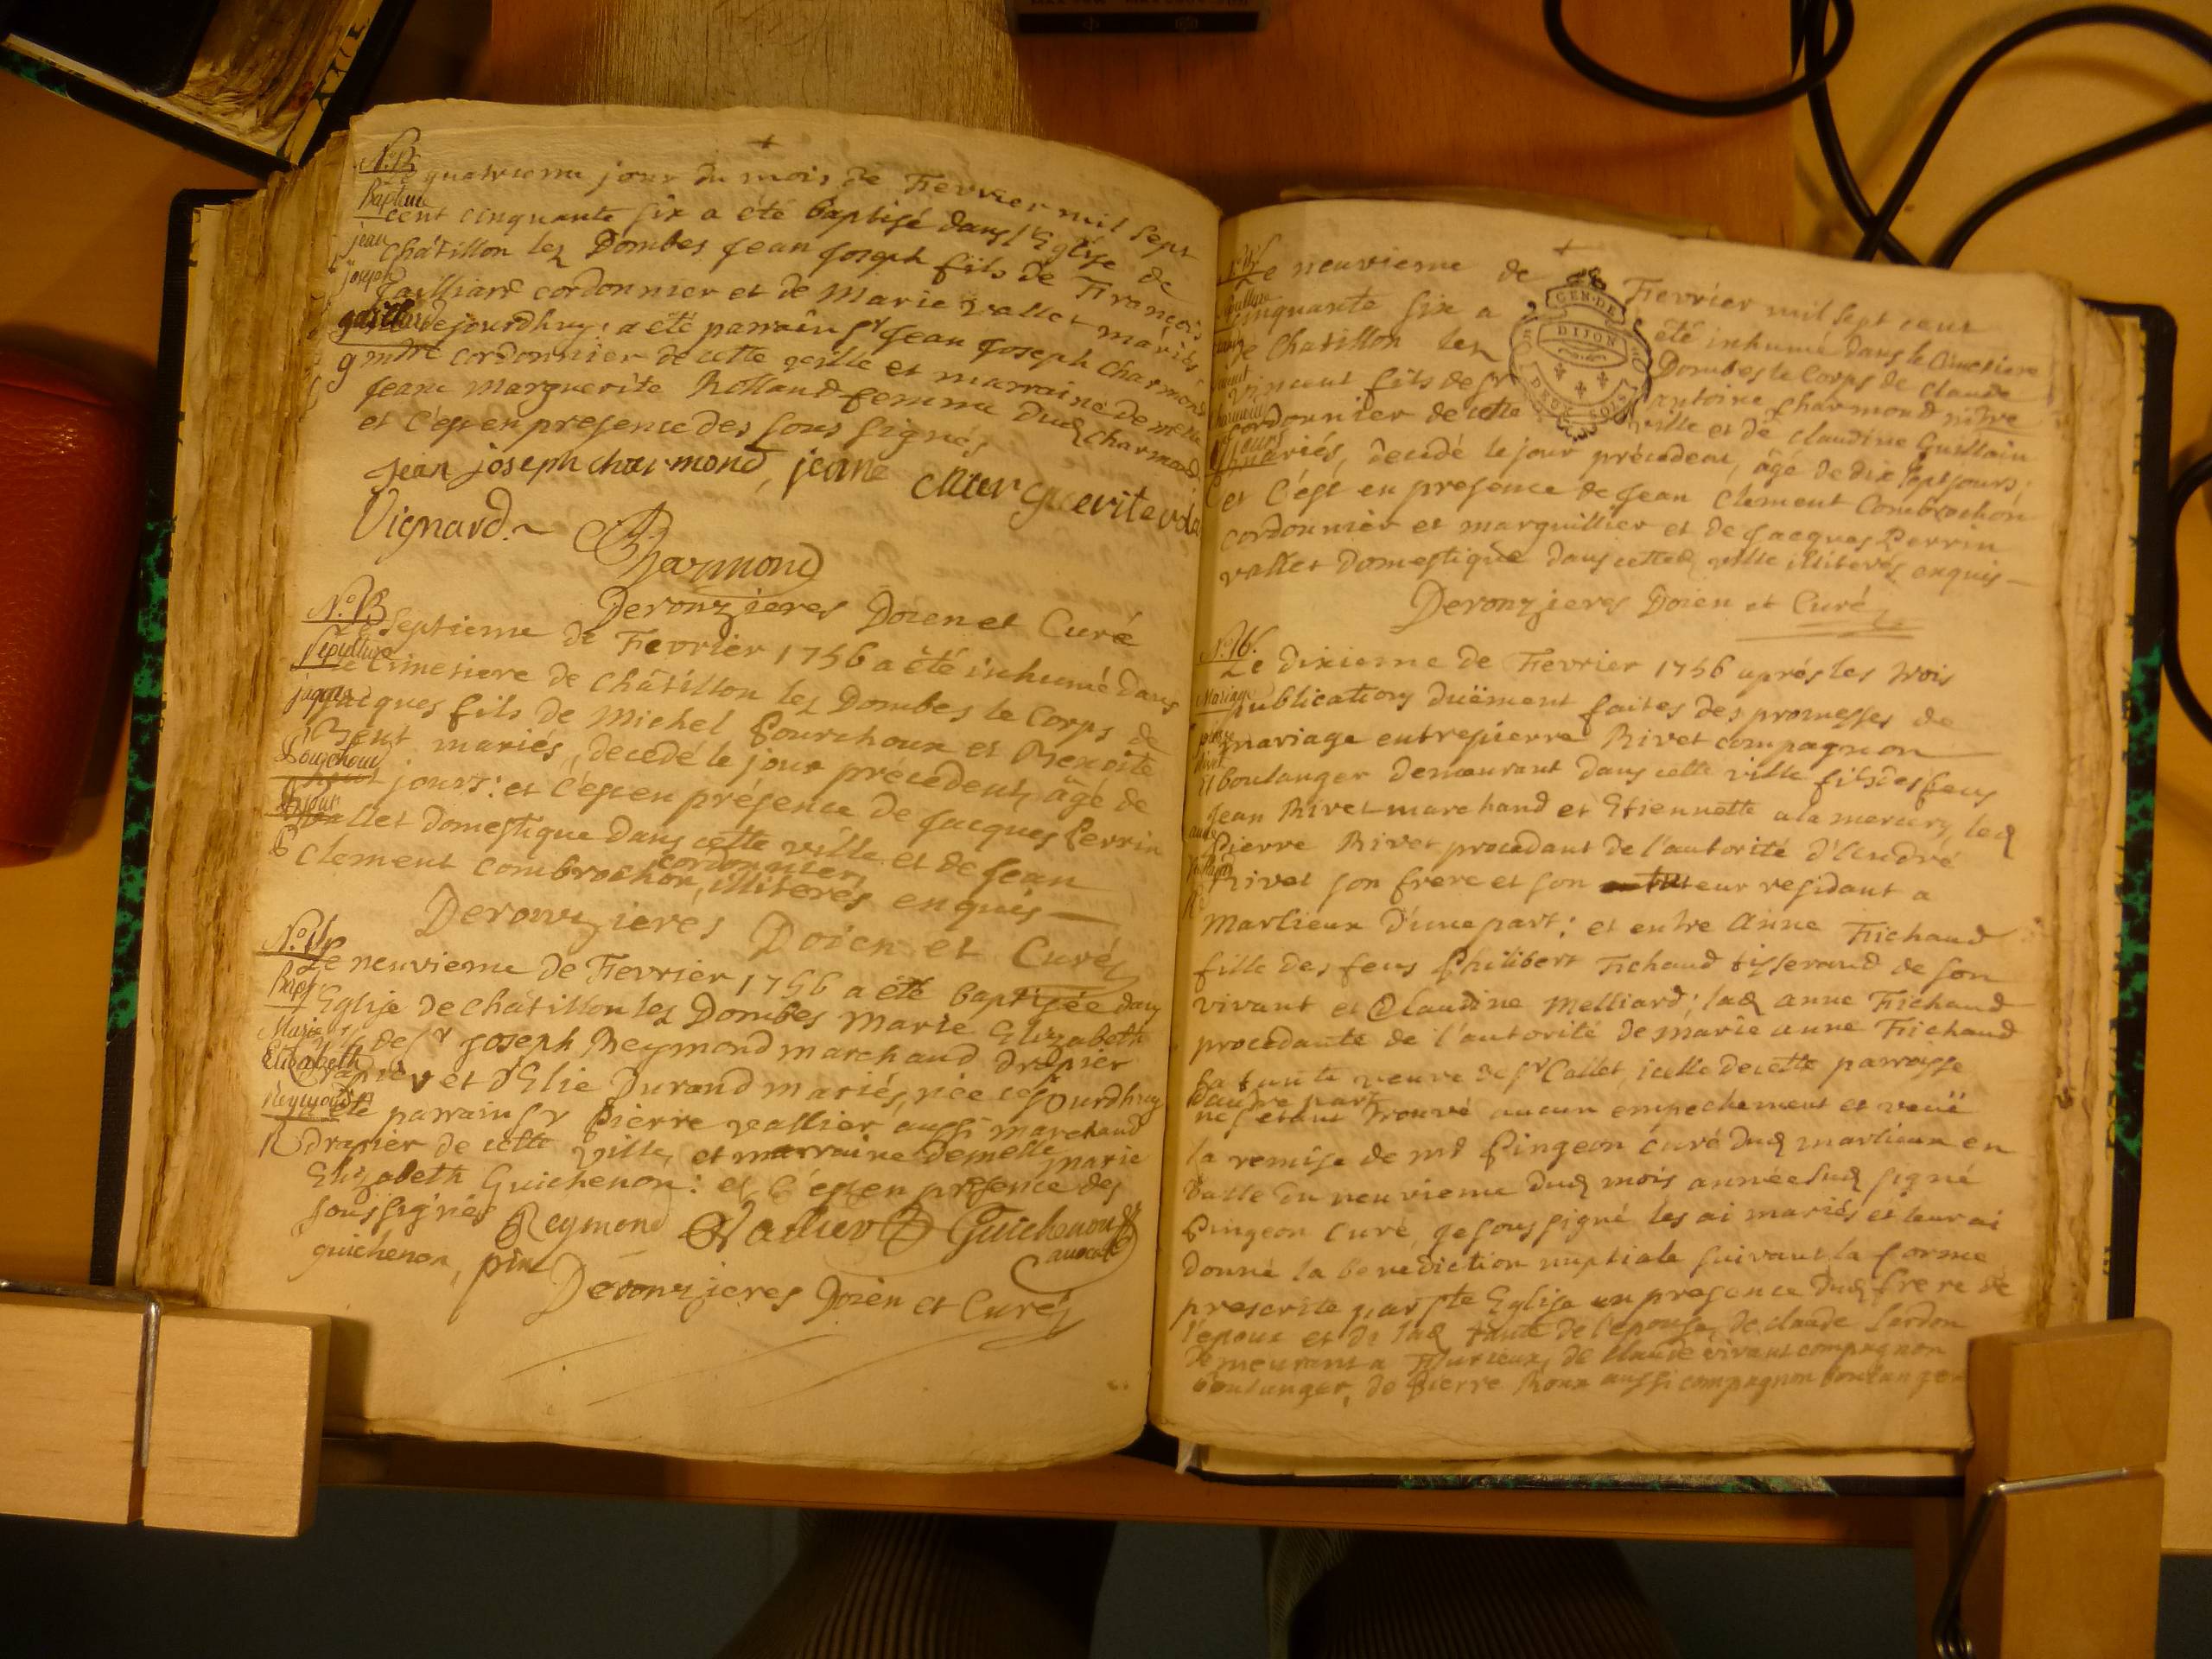 N.o 12
Le quatrieme jour du mois de Fevrier mil sept
Bapteme
cent cinquante six a été baptisé dans l'Eglise de
jean
Châtillon lez Dombes Jean Joseph fils de François
joseph
Gailliard cordonnier et de Marie vallet mariés,
né de jourdhuy; a été parrain sr Jean Joseph Charmond
mtre cordonnier de cette ville et marraine demelle
Jeane Marguerite Rolland femme dud Charmond
et c'est en presence des sous signés
Jean joseph charmond, jeane Marguerite
Vignard. Charmond
Deronzieres Doien et Curé
N.o 13
Le septieme de Fevrier 1756 a été inhumé dans
Sepulture
le Cimetiere de Châtillon lez Dombes le Corps de
jacques
Jacques fils de Michel Pourchoux et Benoite
mariés, decedé le jour précédent, âgé de
Pourchoux
huit jours: et c'est en présence de Jacques Perrin
vallet domestique dans cette ville et de Jean
cordonnier,
Clement Combrochon, illiterés enquis
Deronzieres Doien et Curé
N.o 14
Le neuvieme de Fevrier 1756 a été baptisée dans
Bapt
l'Eglise de Châtillon lez Dombes Marie Elizabeth
Marie
de sr Joseph Reymond marchand drapier
Elizabeth
et d'Elie Durand mariés, née cejourdhuy
Reymond
a été parrain sr Pierre vallier aussi marchand
drapier de cette ville, et marraine demelle Marie
Elizabeth Guichenon: et c'est en presence des
sous signés Reymond Vallier Guichenon
avocat
guichenon,
Deronzieres Doien et Curé
GEN. DE
DIJON
DEUX SOLS
Le neuvieme de Fevrier mil sept cent
cinquante six a été inhumé dans le Cimetiere
de Chatillon lez Dombes le Corps de Claude
Vincent fils de sr antoine Charmond mtre
cordonnier de cette ville et de Claudine Guillain
mariés, decedé le jour précedent, âgé de dix sept jours;
et c'est en presence de Jean Clement Combrochon
cordonnier et marguillier et de Jacques Perrin
vallet Domestique dans cette ville illiterés enquis
Deronzieres Doien et Curé
N.o 16.
Le dixieme de Fevrier 1756 aprés les trois
Mariage
publications duëment faites des promesses de
mariage entre pierre Rivet compagnon
boulanger demeurant dans cette ville fils des feus
Jean Rivet marchand et Etiennette alamercery, led
Pierre Rivet procedant de l'autorité d'André
Rivet son frere et son tuteur residant a
Marlieux d'une part; et entre Anne Fichaud
fille des feus Philibert Fichaud tisserand de son
vivant et Claudine Melliard; lad anne Fichaud
procedante de l'autorité de marie anne Fichaud
sa tante veuve de sr Callet, icelle de cette parroisse
d'autre part
ne s'etant trouvé aucun empechement et veuë
la remise de mr Pingeon curé dud marlieux en
datte du neuvieme dud mois année sud signé
Pingeon Curé, je sous signé les ai mariés et leur ai
donné la benediction nuptiale suivant la forme
prescrite par ste Eglise en presence dud frere de
l'epoux et de lad tante de l'epouse, de claude Lardon
demeurant a Fleurieux, de Claude vivant compagnon
boulanger, de Pierre Roux aussi compagnon boulanger